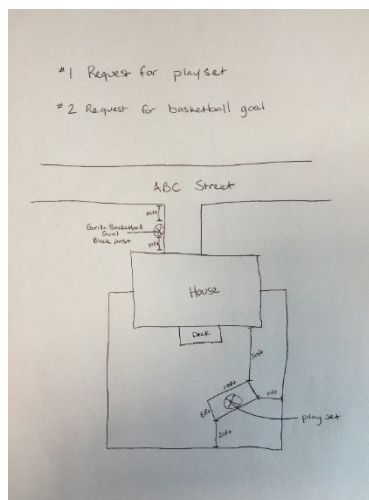 #1 Request for playset
#2 Request for basketball goal
ABC Street
10ft
Gorilla Basketball
Goal
Black post
10ft
House
Deck
30ft
10ft
8ft
10ft
play set
20ft